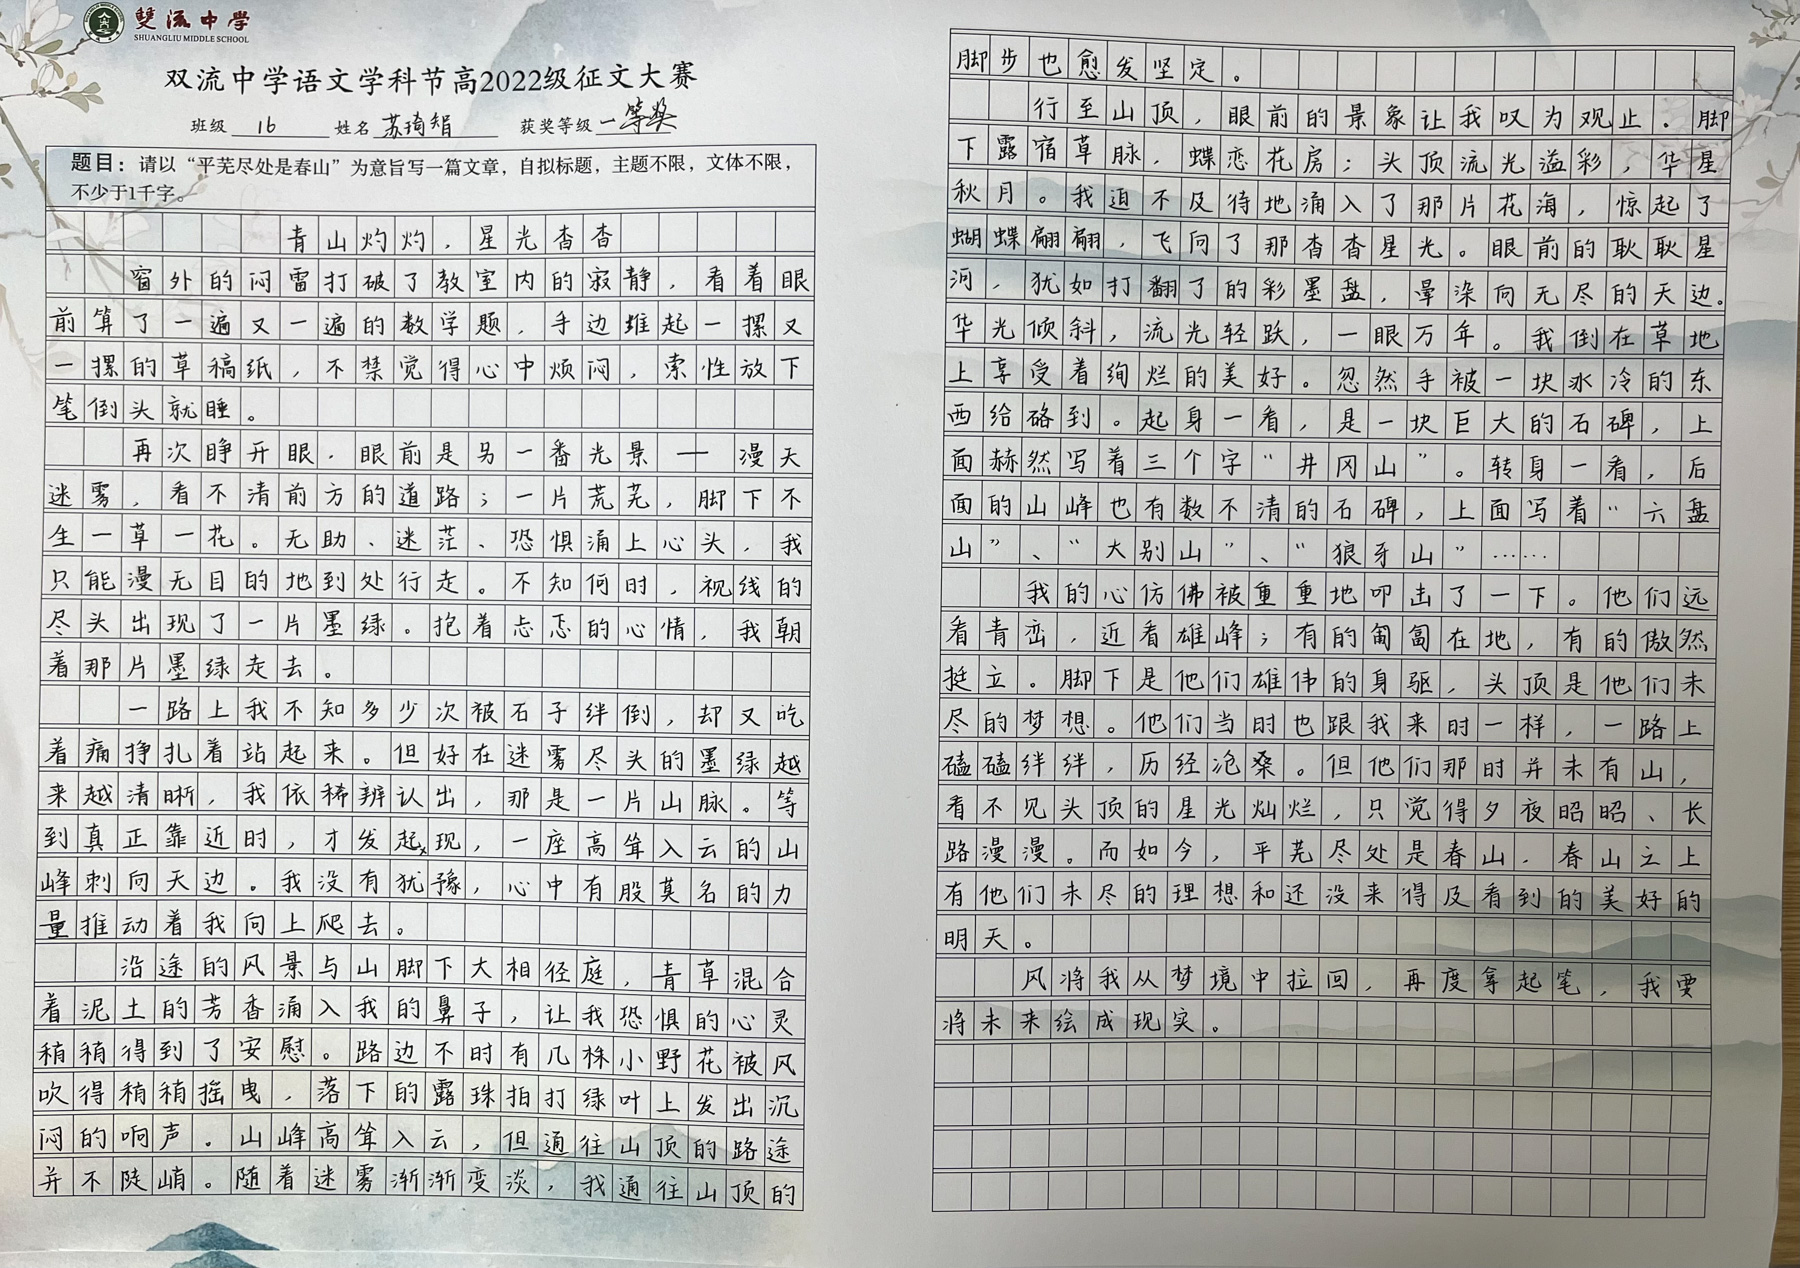 雙流中學
SHUANGLIU MIDDLE SCHOOL
双流中学语文学科节高2022级征文大赛
班级 16 姓名 苏琦娟 获奖等级 一等奖
题目：请以“平芜尽处是春山”为意旨写一篇文章，自拟标题，主题不限，文体不限，
不少于1千字。
青山灼灼，星光杳杳
窗外的闷雷打破了教室内的寂静，看着眼
前算了一遍又一遍的数学题，手边堆起一摞又
一摞的草稿纸，不禁觉得心中烦闷，索性放下
笔倒头就睡。
再次睁开眼，眼前是另一番光景——漫天
迷雾，看不清前方的道路；一片荒芜，脚下不
生一草一花。无助、迷茫、恐惧涌上心头，我
只能漫无目的地到处行走。不知何时，视线的
尽头出现了一片墨绿。抱着忐忑的心情，我朝
着那片墨绿走去。
一路上我不知多少次被石子绊倒，却又吃
着痛挣扎着站起来。但好在迷雾尽头的墨绿越
来越清晰，我依稀辨认出，那是一片山脉。等
到真正靠近时，才发起现，一座高耸入云的山
峰刺向天边。我没有犹豫，心中有股莫名的力
量推动着我向上爬去。
沿途的风景与山脚下大相径庭，青草混合
着泥土的芳香涌入我的鼻子，让我恐惧的心灵
稍稍得到了安慰。路边不时有几株小野花被风
吹得稍稍摇曳，落下的露珠拍打绿叶上发出沉
闷的响声。山峰高耸入云，但通往山顶的路途
并不陡峭。随着迷雾渐渐变淡，我通往山顶的
脚步也愈发坚定。
行至山顶，眼前的景象让我叹为观止。脚
下露宿草脉，蝶恋花房；头顶流光溢彩，华星
秋月。我迫不及待地涌入了那片花海，惊起了
蝴蝶翩翩，飞向了那杳杳星光。眼前的耿耿星
河，犹如打翻了的彩墨盘，晕染向无尽的天边。
华光倾斜，流光轻跃，一眼万年。我倒在草地
上享受着绚烂的美好。忽然手被一块冰冷的东
西给硌到。起身一看，是一块巨大的石碑，上
面赫然写着三个字“井冈山”。转身一看，后
面的山峰也有数不清的石碑，上面写着“六盘
山”、“大别山”、“狼牙山”……
我的心仿佛被重重地叩击了一下。他们远
看青峦，近看雄峰；有的匍匐在地，有的傲然
挺立。脚下是他们雄伟的身躯，头顶是他们未
尽的梦想。他们当时也跟我来时一样，一路上
磕磕绊绊，历经沧桑。但他们那时并未有山，
看不见头顶的星光灿烂，只觉得夕夜昭昭、长
路漫漫。而如今，平芜尽处是春山，春山之上
有他们未尽的理想和还没来得及看到的美好的
明天。
风将我从梦境中拉回，再度拿起笔，我要
将未来绘成现实。